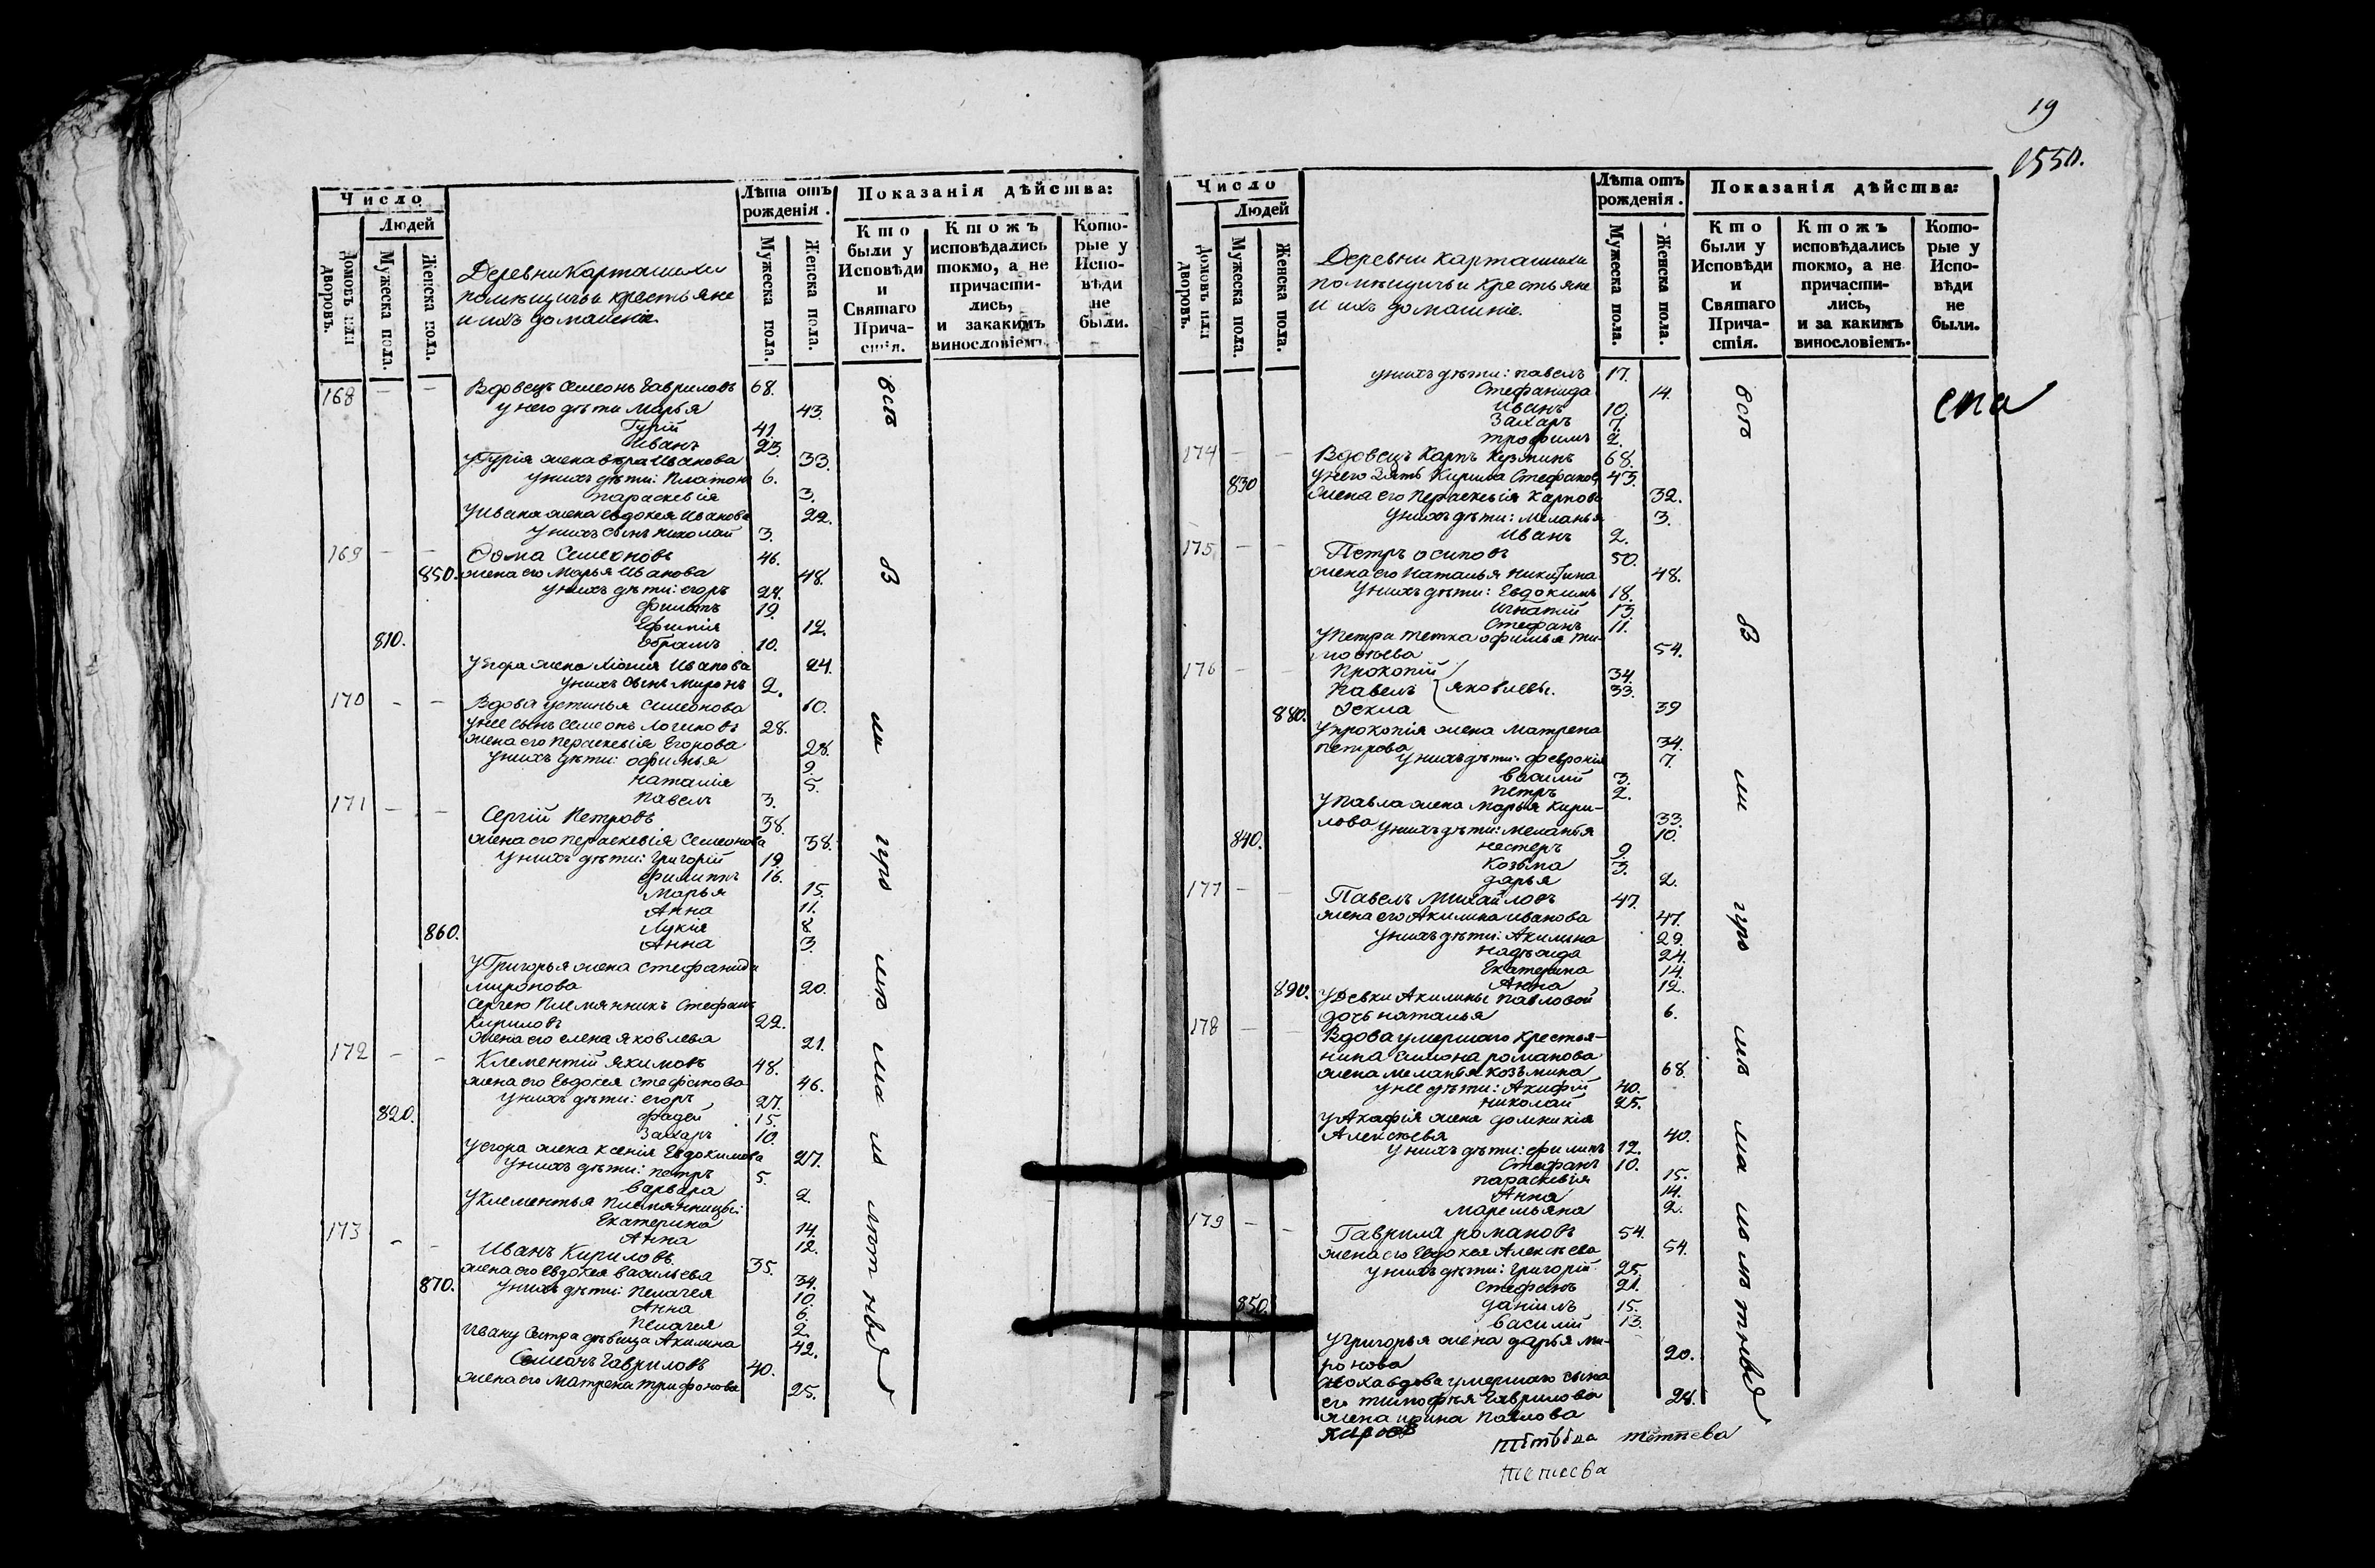 Число
Людей
Домовъ или дворовъ.
Мужеска пола.
Женска пола.
Деревни Карташихи
помѣщичьи крестьяне
и ихъ домашніе.
Лѣта отъ рожденія.
Мужеска пола.
Женска пола.
Показанія дѣйства:
Кто были у Исповѣди и Святаго Прича-стія.
Ктожъ исповѣдались токмо, а не причасти-лись, и закакимъ винословіемъ.
Кото-рые у Испо-вѣди не были.
168 — — Вдовецъ Симеонъ Гавриловъ 68.
у него дѣти Марья 43.
Гурій 41.
Иванъ 23.
у Гурія жена вѣра Иванова 33.
у нихъ дѣти: Платонъ 6.
параскевія 3.
у Ивана жена евдокея Иванова 22.
у нихъ сынъ Николай 3.
169 — — Ѳома Семеновъ 46.
850. жена его Марья Иванова 48.
у нихъ дѣти: егоръ 24.
филатъ 19.
Ефимія 12.
810. Абрамъ 10.
у Егора жена Иванова 24.
у нихъ сынъ Миронъ 2.
170 - — Вдова устинья Симеонова 60.
у нее сынъ Семеонъ Логиновъ 28.
жена его Параскевія Егорова 28.
у нихъ дѣти: офимья 9.
наталія 5.
Павелъ 3.
171 — — Сергій Петровъ 38.
жена его параскевія Семеонова 38.
у нихъ дѣти: Григорій 19.
филиппъ 16.
Марья 15.
Анна 11.
860. Лукія 8
Анна 3.
у Григорья жена Стефанида
миронова 20.
Сергею Племянникъ Стефанъ
Кириловъ 22.
жена его елена яковлева 21.
172 — - Клементій якимовъ 48.
жена его Евдокея Стефанова 46.
у нихъ дѣти: егоръ 27.
820. фадей 15.
Захаръ 10.
у егора жена ксенія Евдокимова 27.
у нихъ дѣти: петръ 5.
варвара 2.
у клементья племянницы:
Екатерина 14.
Анна 12.
173 - - Иванъ Кириловъ 35.
жена его евдокея васильева 34.
870. у нихъ дѣти: Пелагея 10.
Анна 6.
Пелагея 2.
Ивану Сестра дѣвица Акилина 42.
Семенъ Гавриловъ 40.
жена его матрена трифонова 25.
19
1550.
Число
Людей
Домовъ или дворовъ.
Мужеска пола.
Женска пола.
Деревни карташихи
помѣщичьи крестьяне
и ихъ домашніе.
Лѣта отъ рожденія.
Мужеска пола.
Женска пола.
Показанія дѣйства:
Кто были у Исповѣди и Святаго Прича-стія.
Ктожъ исповѣдались токмо, а не причасти-лись, и за какимъ винословіемъ.
Кото-рые у Испо-вѣди не были.
у нихъ дѣти: павелъ 17.
Стефанида 14.
Иванъ 10.
Захаръ 7.
трофимъ 2.
174 — — Вдовецъ Карпъ Кузминъ 68.
830 у него Зять Кирила Стефановъ 43.
жена его параскевія карпова 32.
у нихъ дѣти: Меланья 3.
Иванъ 2.
175. — — Петръ осиповъ 50.
жена его наталья никитина 48.
у нихъ дѣти: Евдокимъ 18.
игнатій 13.
Стефанъ 11.
у Петра тетка офимья ти-
мофѣева 54.
176 — — Прокопій 34.
Павелъ яковлевы. 33.
880. Ѳекла 39
у прокопія жена матрена
петрова 34.
у нихъ дѣти: февронія 7.
василій 3.
петръ 2.
у павла жена марья кири-
лова 33.
у нихъ дѣти: меланья 10.
840. нестеръ 9.
Козьма 3.
дарья 2.
177 — — Павелъ михайловъ 47.
жена его Акилина иванова 47.
у нихъ дѣти: Акилина 29.
надѣжда 24.
Екатерина 14.
890. Анна 12.
у Девки Акилины павловой
дочь наталья 6.
178 — — Вдова умершаго крестья-
нина Симона романова
жена меланья козьмина 68.
у нее дѣти: Акифій 40.
николай 25.
у Акафія жена домникія
Алексѣева 40.
у нихъ дѣти: филипъ 12.
Стефанъ 10.
параскевія 15.
Анна 14.
маремьяна 2.
179 — — Гаврила романовъ 54.
жена его Евдокея Алексѣева 54.
у нихъ дѣти: Григорій 25.
Стефанъ 21.
850. даніилъ 15.
василій 13.
у григорья жена дарья ми-
ронова 20.
Сноха вдова умершаго сына
его тимофѣя Гаврилова 28.
жена ирина павлова